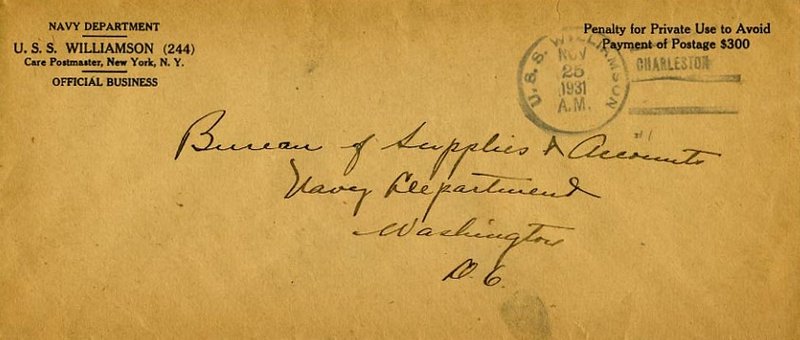 NAVY DEPARTMENT
U. S. S. WILLIAMSON (244)
Care Postmaster, New York, N. Y.
OFFICIAL BUSINESS
Penalty for Private Use to Avoid
Payment of Postage $300
U. S. S. WILLIAMSON
NOV
25
1931
A.M.
CHARLESTON
Bureau of Supplies & Accounts
Navy Department
Washington
D. C.